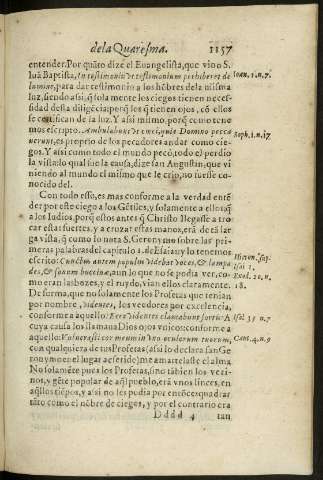 de la Quaresma. 1157
entender. Por quãto dize el Euangelista, que vino S.
Iuã Baptista, In testimoniũ vt testimonium perhiberet de
lumine, para dar testimonio a los hõbres de la misma
luz, siendo assi, q̃ sola mente los ciegos tienen neces-
sidad desta diligẽcia, porq̃ los q̃ tienen ojos, cõ ellos
se certifican de la luz. Y assi mismo, porq̃ como tene
mos escripto. Ambulabunt vt cæci, quia Domino pecca
uerunt, es proprio de los pecadores andar como cie-
gos. Y assi como todo el mundo pecò, todo el perdio
la vista, lo qual fue la causa, dize san Augustin, que vi
niendo al mundo el mismo que le crio, no fuesse co
nocido del.
Con todo esso, es mas conforme a la verdad entẽ
der por este ciego a los Gẽtiles, y solamente a ellos, q̃
a los Iudios, porq̃ estos antes q̃ Christo llegasse a tro
car estas suertes, y a cruzar estas manos, erã de tã lar
ga vista, q̃ como lo nota S. Geronymo sobre las pri-
meras palabras del capitulo 1. de Esaias, yo lo tenemos
escrito: Cunctus autem populus videbat voces, & lampa
des, & sonum buccinæ, aun lo que no se podia ver, co-
mo eran las bozes, y el ruydo, vian ellos claramente.
De forma, que no solamente los Profetas que tenian
por nombre, videntes, los veedores por excelencia,
conforme a aquello: Ecce videntes clamabunt foris: A
cuya causa los llamaua Dios ojos voicos: conforme a
aquello: Vulnerasti cor meum in vno oculorum tuorum,
con qualquiera de tus Profetas (assi lo declara san Ge
ronymo en el lugar a referido) me amartelaste el alma.
No solamẽte pues los Profetas, sino tãbien los vezi-
nos, y gẽte popular de aq̃l pueblo, erã vnos linces, en
aq̃llos tiẽpos, y assi no les podia por entõces quadrar
tãto como el nõbre de ciegos, y por el contrario era
Dddd 4 tan
Ioan. 1. n. 7.
Soph. 1. n. 17
Hieron. sup.
Isai. 1.
Exod. 20. n.
18.
Isai. 33. n. 7
Cant. 4. n. 9